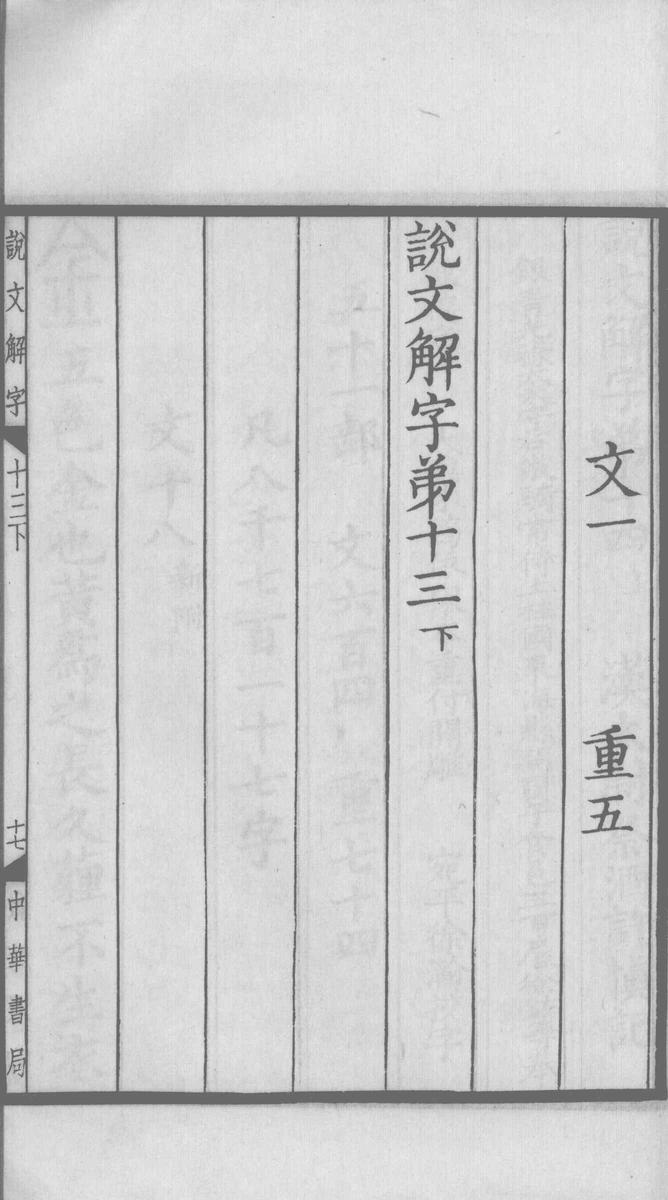 文一 重五
說文解字弟十三下
說文解字 十三下 十七 中華書局